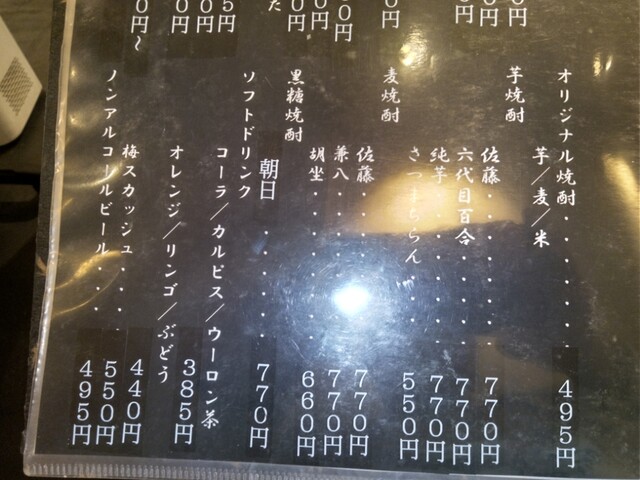 0円
0円
0円
00円
0円
0円
た
5円
0円
0円
0円～
オリジナル焼酎・・・・・・・・495円
芋／麦／米
芋焼酎
佐藤・・・・・・・・770円
六代目百合・・・・・770円
純芋・・・・・・・・770円
さつまちらん・・・・550円
麦焼酎
佐藤・・・・・・・・770円
兼八・・・・・・・・770円
胡坐・・・・・・・・660円
黒糖焼酎
朝日・・・・・・770円
ソフトドリンク
コーラ／カルピス／ウーロン茶
オレンジ／リンゴ／ぶどう 385円
梅スカッシュ・・・・440円
ノンアルコールビール・・・・550円
495円